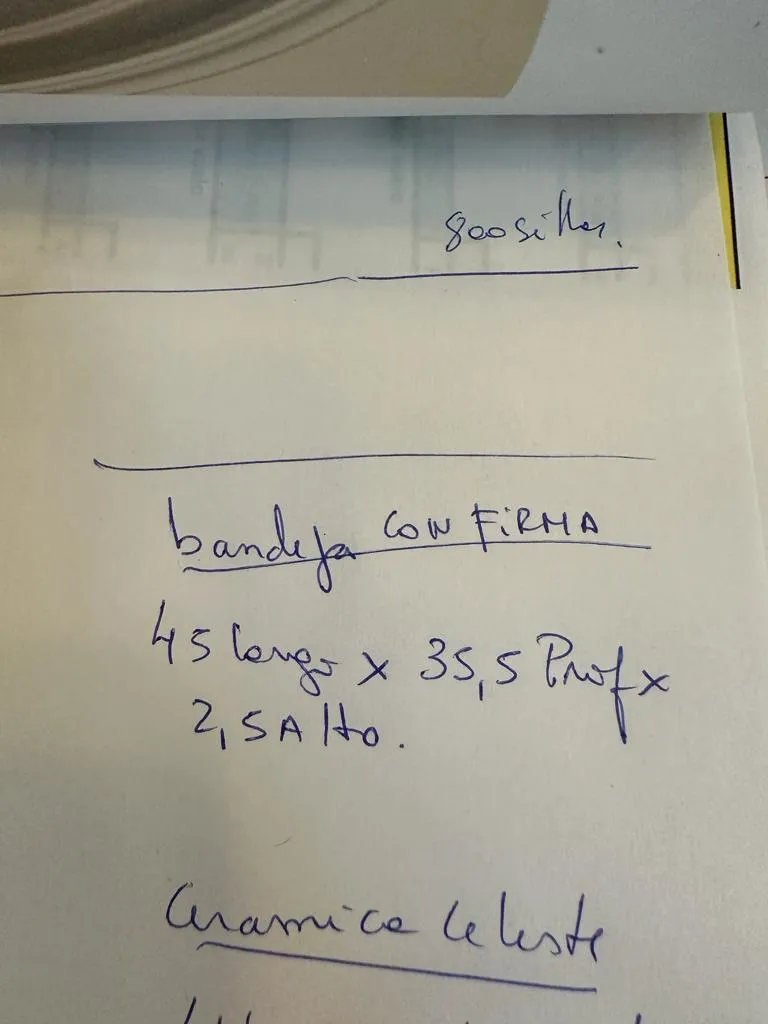 800 sillas.
bandeja CON FiRMA
45 largo x 35,5 Prof x
2,5 Alto.
Ceramica Celeste